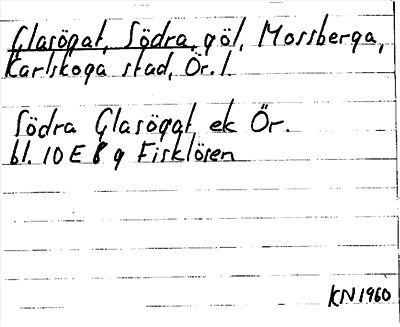 Glasögat, Södra, göl, Mossberga,
Karlskoga stad, Ör. l.
Södra Glasögat ek Ör.
bl. 10 E 8 g Fisklösen
KN 1960